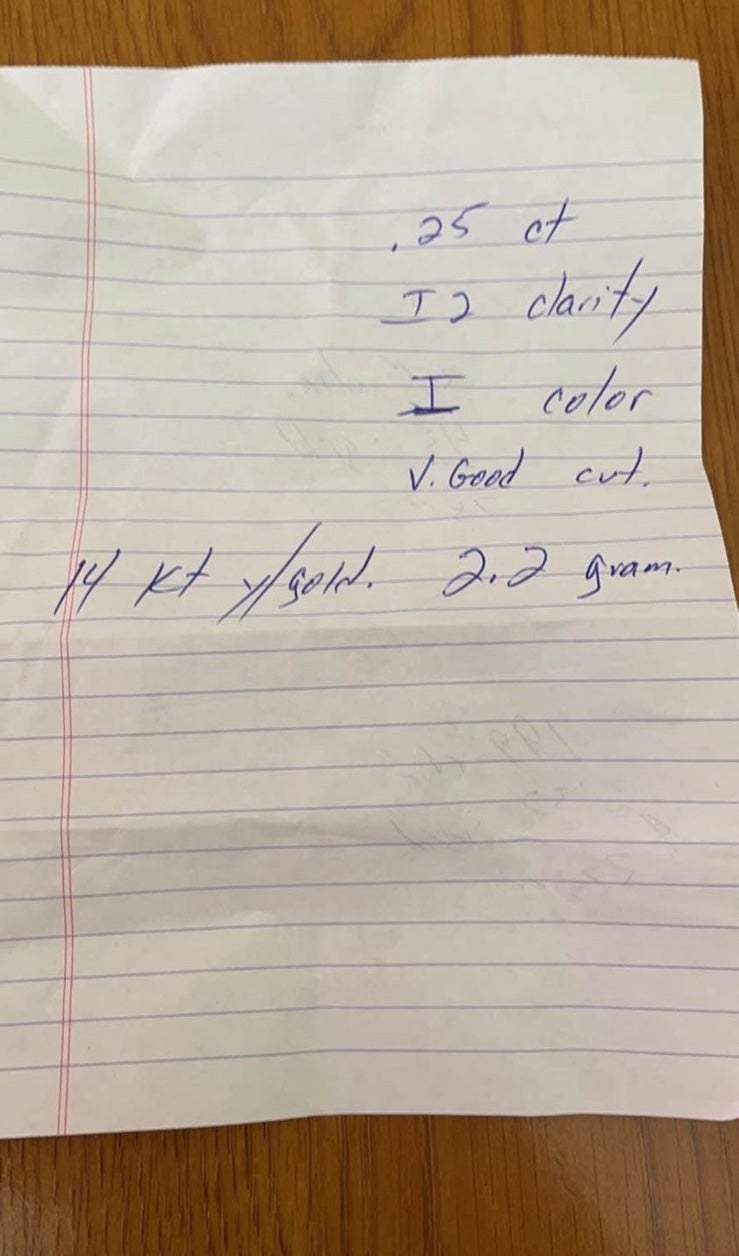 .25 ct
I2 clarity
I color
V. Good cut.
14 kt y/gold. 2.2 gram.